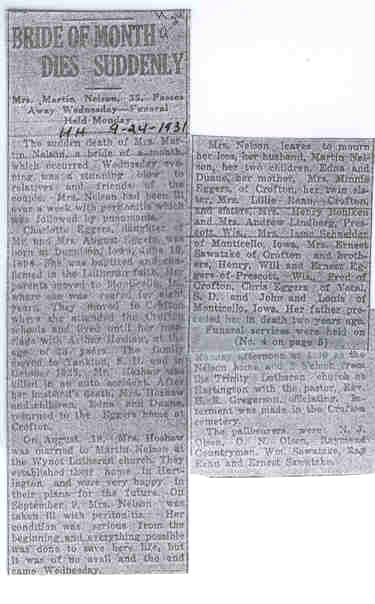 BRIDE OF MONTH
DIES SUDDENLY
Mrs. Martin Nelson, 35, Passes
Away Wednesday—Funeral
Held Monday
HH 9-24-1931
The sudden death of Mrs. Mar-
tin Nelson, a bride of a month,
which occurred Wednesday eve-
ning, was a stunning blow to
relatives and friends of the
couple. Mrs. Nelson had been ill
over a week with peritonitis which
was followed by pneumonia.
Charlotte Eggers, daughter of
Mr. and Mrs. August Eggers, was
born at Iowa, June 10,
1896. She was baptized and con-
firmed in the Lutheran faith. Her
parents moved to Monticello,
where she was reared for eight
years. They moved to Crofton
where she attended the Crofton
schools and lived until her mar-
riage with Arthur Hoshaw, at the
age of years. The family
moved to Yankton, S. D. and in
October, 1925, Mr. Hoshaw was
killed in an auto accident. After
her husband's death, Mrs. Hoshaw
and children, Edna and Duane,
returned to the Eggers home at
Crofton.
On August 18, Mrs. Hoshaw
was married to Martin Nelson at
the Wynot Lutheran church. They
established their home in Hart-
ington and were very happy in
their plans for the future. On
September 9, Mrs. Nelson was
taken ill with peritonitis. Her
condition was serious from the
beginning and everything possible
was done to save here life, but
it was of no avail and the end
came Wednesday.
Mrs. Nelson leaves to mourn
her loss, her husband, Martin Nel-
son, her two children, Edna and
Duane, her mother, Mrs. Minnie
Eggers, of Crofton, her twin sis-
ter, Mrs. Lillie Renu, Crofton,
and sisters, Mrs. Henry
and Mrs. Andrew Lindberg, Pres-
cott, Wis., Mrs. Jack Schneider
of Monticello, Iowa, Mrs. Ernest
Sawatzke of Crofton and broth-
ers, Henry, Will and Ernest Eg-
gers of Prescott, Wis., Fred of
Crofton, Chris Eggers of Vatal,
S. D. and John and Louis of
Monticello, Iowa. Her father pre-
ceded her in death two years ago.
Funeral services were held on
(No. 4 on page 5)
Monday afternoon at 1:30 at the
Nelson home and 2 o'clock from
the Trinity Lutheran church at
Hartington with the pastor, Rev.
H. R. Gregerson, officiating. In-
terment was made in the Crofton
cemetery.
The pallbearers were: N. J.
Olsen, O. N. Olsen, Raymond
Countryman, Wm. Sawatzke,
and Ernest Sawatzke.